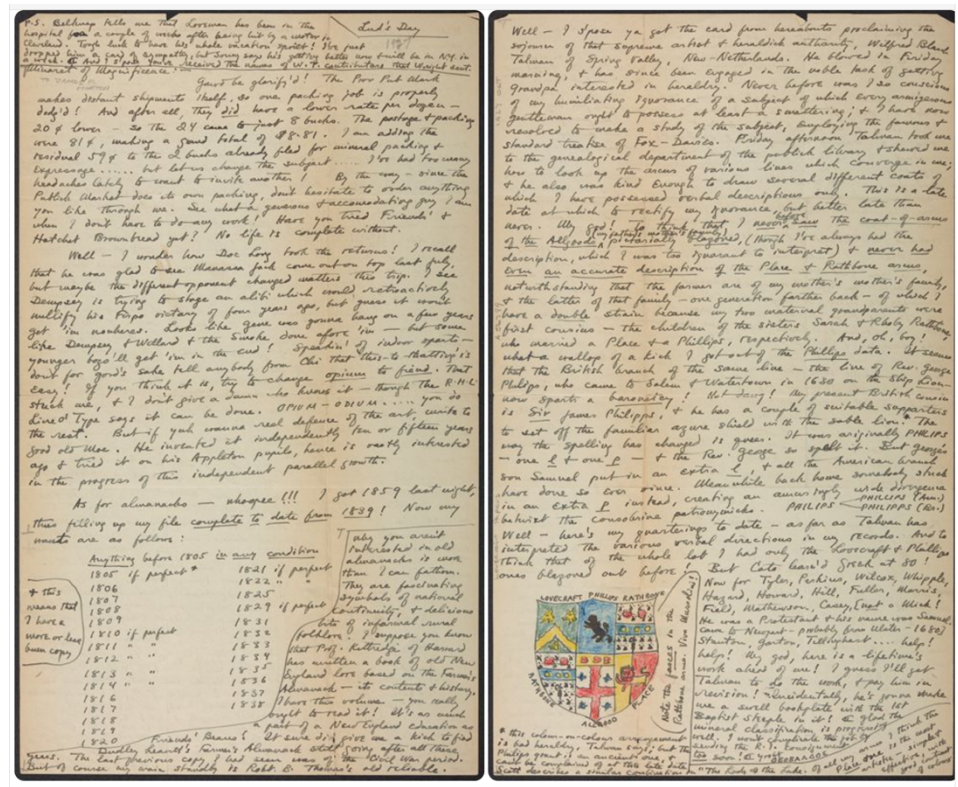 P.S. Belknap tells me that Loveman has been in the
hospital for a couple of weeks after being hit by a motor in
Cleveland. Tough luck to have his whole vacation spoilt! I've just
dropped him a card of sympathy, but Sonny says he's getting better and will be in N.Y. in
a week.
Lud's Day
Gawd be glorify'd! The Poor Put Mark
makes distant shipments itself, so one packing job is properly
dodg'd! And after all, they did have a lower rate per dozen—
20¢ lower— so the $4 came to just 8 bucks. The postage & packing
were 81¢, making a grand total of $8.81. I am adding the
residual 59¢ to the 2 bucks already filed for mineral packing &
expressage...... but let us change the subject..... I've had too many
headaches lately to want to invite another! By the way— since the
Publick Market does its own packing, don't hesitate to order anything
you like through me. See what a generous & accomodating guy I am
when I don't have to do any work! Have you tried Friends'
Hatchet Brownbread yet? No life is complete without.
Well— I wonder how Doc Long took the returns! I recall
that he was glad to see Manassa Jack come out on top last July,
but maybe the different opponent changed matters this trip. I see
Dempsey is trying to stage an alibi which would retroactively
nullify his Firpo victory of four years ago, but guess it won't
get 'im nowheres. Looks like Gene was gonna hang on a few years
like Dempsey & Willard & the Smoke done afore 'im— but some
younger boys'll get 'im in the end! Speakin' of indoor sports—
don't for gord's sake tell anybody from Chi that this-to-thatting is
easy! If you think it is, try to change opium to fiend. That
stuck me, & I don't give a damn who knows it— though the
Line o' Type says it can be done. OPIUM - ODIUM..... you do
the rest. But if yuh wanna real defence of the art, write to
good old Moe. He invented it independently ten or fifteen years
ago & tried it on his Appleton pupils, hence is vastly interested
in the progress of this independent parallel growth.
As for almanacks— whoopee!!! I got 1859 last night,
thus filling up my file complete to date from 1839! Now my
wants are as follows:
Anything before 1805 in any condition
1805 if perfect*
1806
1807
1808
1809
1810 if perfect
1811 " "
1812 " "
1813 " "
1814 " "
1816
1817
1818
1819
1820
1821 if perfect
1822 " "
1825
1829 if perfect
1831
1832
1833
1834
1835
1836
1837
1838
* this
means that
I have a
more or less
bum copy
Why you aren't
interested in old
almanacks is more
than I can fathom.
They are fascinating
symbols of national
continuity, & delicious
bits of informal rural
folklore. I suppose you know
that Prof. Kittredge of Harvard
has written a book of old New
England lore based on the Farmer's
Almanack— its contents & history.
I have this volume— you really
ought to read it! It's as much
a part of a New England education as
Friends' Beans! It sure did give me a kick to find
Dudley Leavitt's Farmer's Almanack still going after all these
years. The last previous copy I had seen was of the Civil War period.
But of course my main standby is Robt. B. Thomas's old reliable.
Well— I s'pose ya got the card from hereabouts proclaiming the
sojourn of that supreme artist & heraldick authority, Wilfred Blanch
Talman of Spring Valley, New-Netherlands. He blowed in Friday
morning, & has since been engaged in the noble task of getting
grandpa interested in heraldry. Never before was I so conscious
of my humiliating ignorance of a subject of which every armigerous
gentleman ought to possess at least a smattering; & I have now
resolved to make a study of the subject, employing the famous &
standard treatise of Fox-Davies. Friday afternoon Talman took me
to the genealogical department of the publick library & shewed me
how to look up the arms of various lines which converge in me;
& he also was kind enough to draw several different coats of
which I have possessed verbal descriptions only. This is a late
date at which to rectify my ignorance, but better late than
never. My God! to think that I never before saw the coat-of-arms
of the Allgoods (my father's mother's family) pictorially blazoned, (though I've always had the
description, which I was too ignorant to interpret) & never had
even an accurate description of the Place & Rathbone arms,
notwithstanding that the former are of my mother's mother's family,
& the latter of that family— one generation farther back— of which I
have a double strain because my two maternal grandparents were
first cousins— the children of the sisters Sarah & Rhoby Rathbone,
who married a Place & a Phillips, respectively. And, oh, boy!
what a wallop of a kick I got out of the Phillips data. It seems
that the British branch of the same line— the line of Rev. George
Philips, who came to Salem & Watertown in 1630 on the Ship Lion—
now sports a baronetcy! Hot dawg! My present British cousin
is Sir James Philipps, & he has a couple of suitable supporters
to set off the familiar azure shield with the sable lion.* The
way the spelling has changed is queer. It was originally PHILIPS
— one l & one p— & the Rev. George so spelt it. But George's
son Samuel put in an extra l, & all the American branch
have done so ever since. Meanwhile back home somebody stuck
in an extra p instead, creating an amusingly wide divergence
betwixt the consobrine patronymicks. PHILIPS PHILLIPS (Am.)
PHILIPPS (Br.)
Well— here's my quarterings to date— as far as Talman has
interpreted the various verbal directions in my records. And to
think that of the whole lot I had only the Lovecraft & Phillips
ones blazoned out before!
LOVECRAFT PHILLIPS RATHBONE
RATHBONE ALLGOOD PLACE
Note the faeces in the
Rathbone arms. Viva Mussolini!
But Cato learn'd Greek at 80!
Now for Tyler, Perkins, Wilcox, Whipple,
Hazard, Howard, Hill, Fuller, Morris,
Field, Mathewson, Casey, (not a Mick!
He was a Protestant & his name was Samuel
came to Newport— probably from Ulster— 1680)
Stanton, Gorton, Tillinghast... help!
help! My god, here is a lifetime's
work ahead of me! I guess I'll get
Talman to do the work, & pay him in
revision! Incidentally, he's gonna make
me a swell bookplate with the 1st
Baptist steeple in it! I'm glad the
mineral classification is progressing
well.
* this colour-on-colour arrangement
is bad heraldry, Talman says; but the
Philips coat is an ancient one, &
can't be complained of at this late date.
Scott describes a similar combination in "The Lady of the Lake.